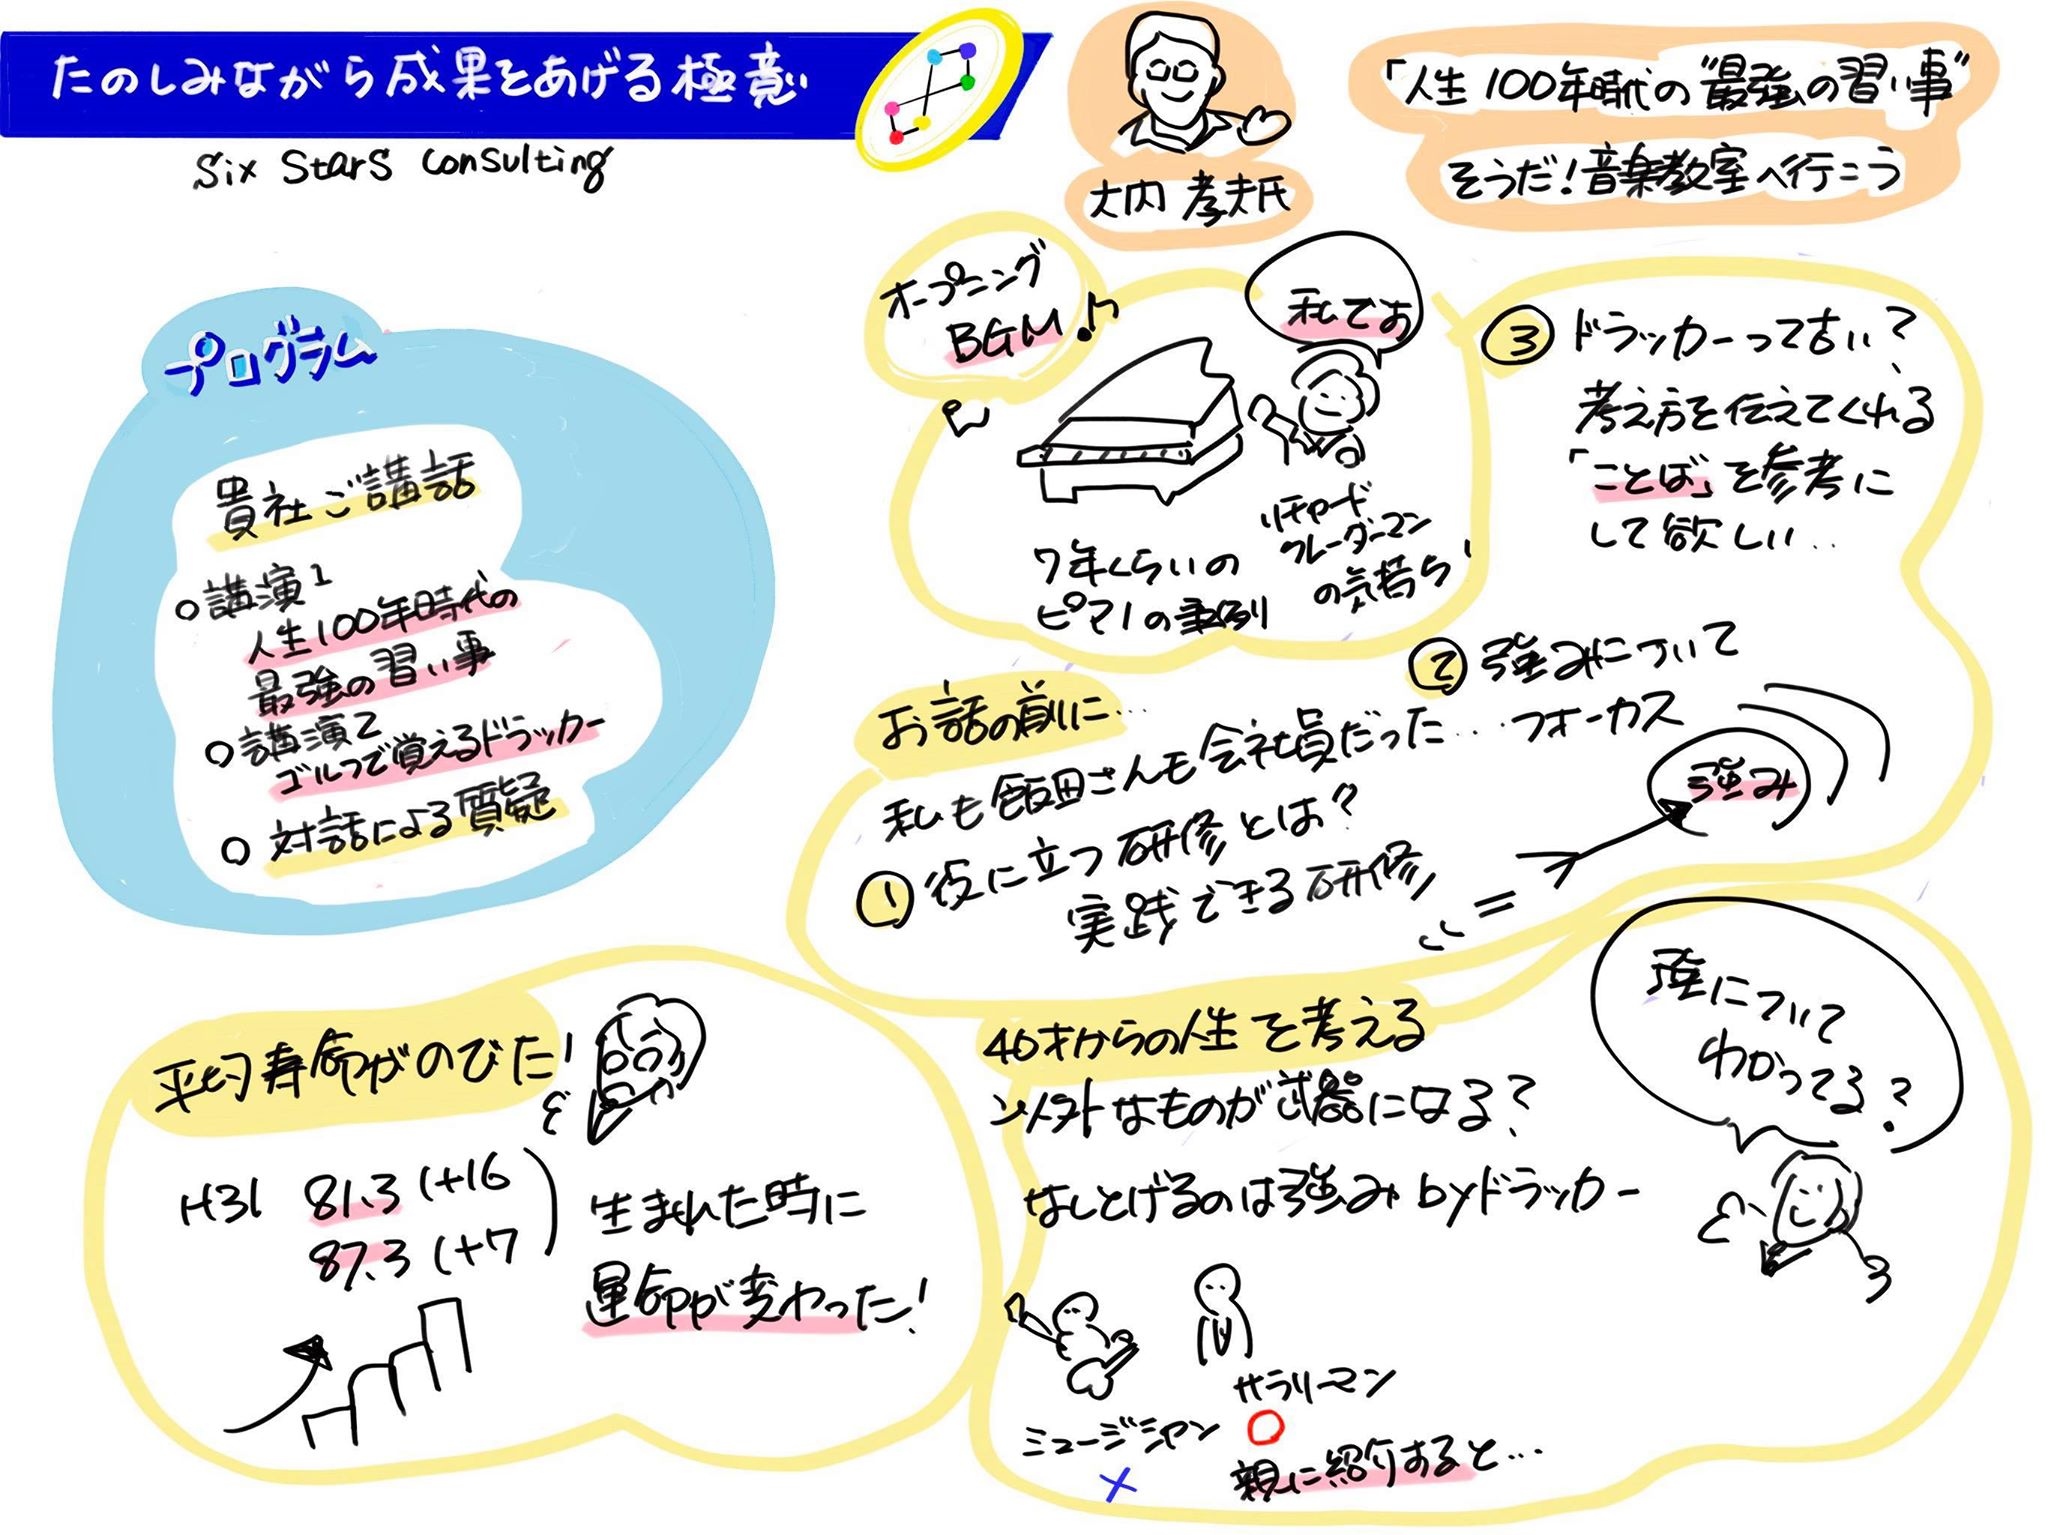 たのしみながら成果をあげる極意
Six Stars Consulting
大内 孝夫氏
「人生100年時代の"最強の習い事"
そうだ!音楽教室へ行こう
プログラム
貴社ご講話
○講演1
人生100年時代の
最強の習い事
○講演2
ゴルフで覚えるドラッカー
○対話による質疑
オープニング
BGM
私でお
7年くらいの
ピアノの事例
リチャード
クレーダーマン
の気持ち!
③ドラッカーって古い?
考え方を伝えてくれる
「ことば」を参考に
して欲しい..
お話の前に...
私も飯田さんも会社員だった...
①役に立つ研修とは?
実践できる研修
②強みについて
フォーカス
強み
平均寿命がのびた!
H31 81.3 (+16
87.3 (+7
生まれた時に
運命が変わった!
40才からの人生を考える
なものが武器になる?
なしとげるのは強みbyドラッカー
強について
わかってる?
ミュージシャン
×
サラリーマン
○
親に紹介すると...